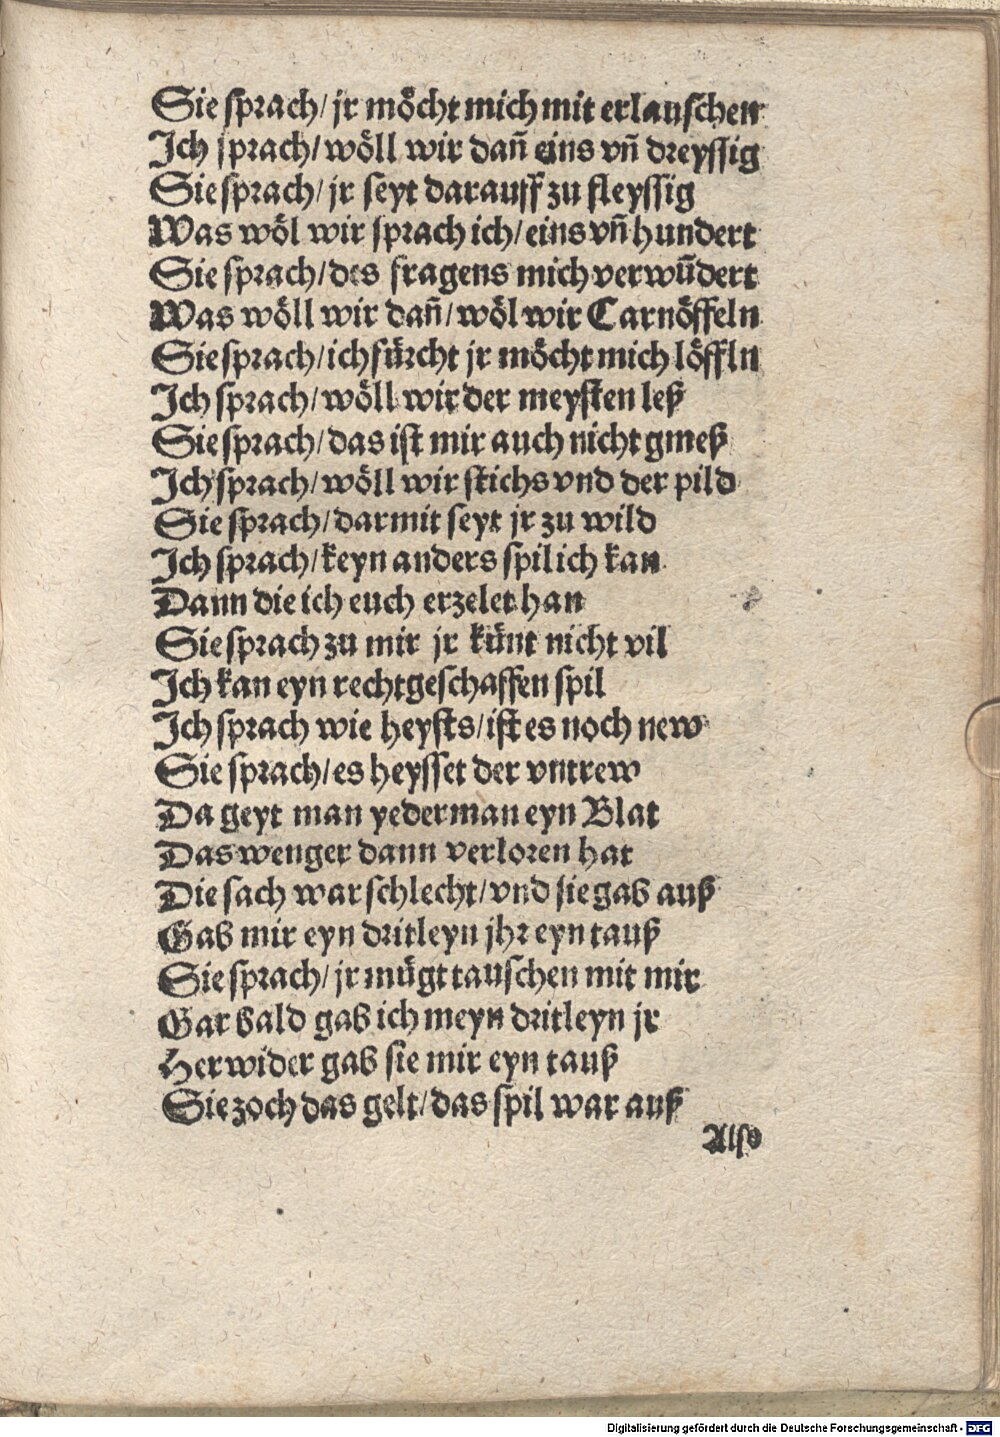 Sie sprach/ jr möcht mich mit erlauschen
Ich sprach/ wöll wir dañ eins vñ dreyssig
Sie sprach/ jr seyt darauff zu fleyssig
Was wöl wir sprach ich/ eins vñ hundert
Sie sprach/ des fragens mich verwũdert
Was wöll wir dañ/ wöl wir Carnöffeln
Sie sprach/ ich fürcht jr möcht mich löffln
Ich sprach/ wöll wir der meysten leß
Sie sprach/ das ist mir auch nicht gmeß
Ich sprach/ wöll wir stichs vnd der pild
Sie sprach/ darmit seyt jr zu wild
Ich sprach/ keyn anders spil ich kan
Dann die ich euch erzelet han
Sie sprach zu mir jr künt nicht vil
Ich kan eyn rechtgeschaffen spil
Ich sprach wie heysts/ ist es noch new
Sie sprach/ es heysset der vntrew
Da geyt man yederman eyn Blat
Das wenger dann verloren hat
Die sach war schlecht/ vnd sie gab auß
Gab mir eyn dritleyn jhr eyn tauß
Sie sprach/ jr mügt tauschen mit mir
Gar bald gab ich meyn dritleyn jr
Her wider gab sie mir eyn tauß
Sie zoch das gelt/ das spil war auß
Also
Digitalisierung gefördert durch die Deutsche Forschungsgemeinschaft - DFG